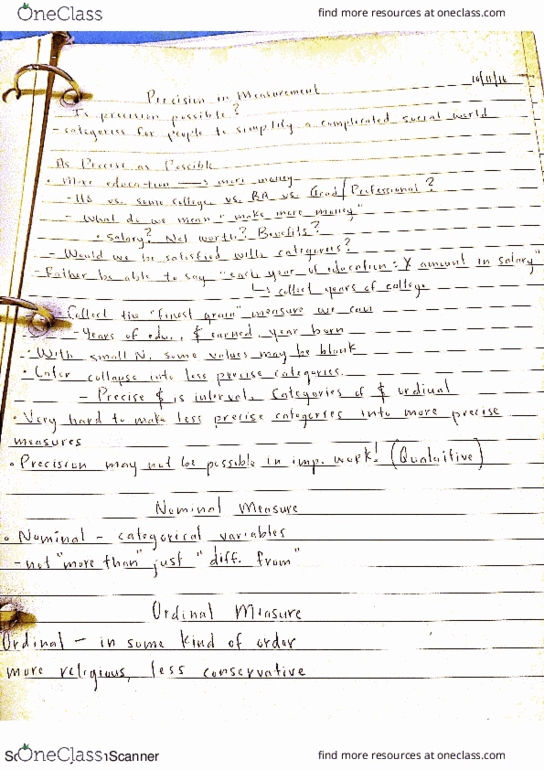 OneClass
find more resources at oneclass.com
10/11/16
Precision in Measurement
Is precision possible?
- categories for people to simplify a complicated social world
As Precise as Possible
• More education → more money
- HS vs. some college vs. BA vs. Grad/Professional?
- What do we mean "make more money"
• Salary? Net worth? Benefits?
- Would we be satisfied with categories?
- Rather be able to say "each year of education = X amount in salary"
↳ collect years of college
• Collect the "finest grain" measure we can
- Years of edu., $ earned, year born
• With small N, some values may be blank
• Later collapse into less precise categories.
- Precise $ is interval. Categories of $ ordinal
• Very hard to make less precise categories into more precise
measures
• Precision may not be possible in imp. work! (Qualaitive)
Nominal Measure
• Nominal - categorical variables
- not "more than" just "diff. from"
Ordinal Measure
Ordinal - in some kind of order
more religious, less conservative
OneClass
Scanner
find more resources at oneclass.com